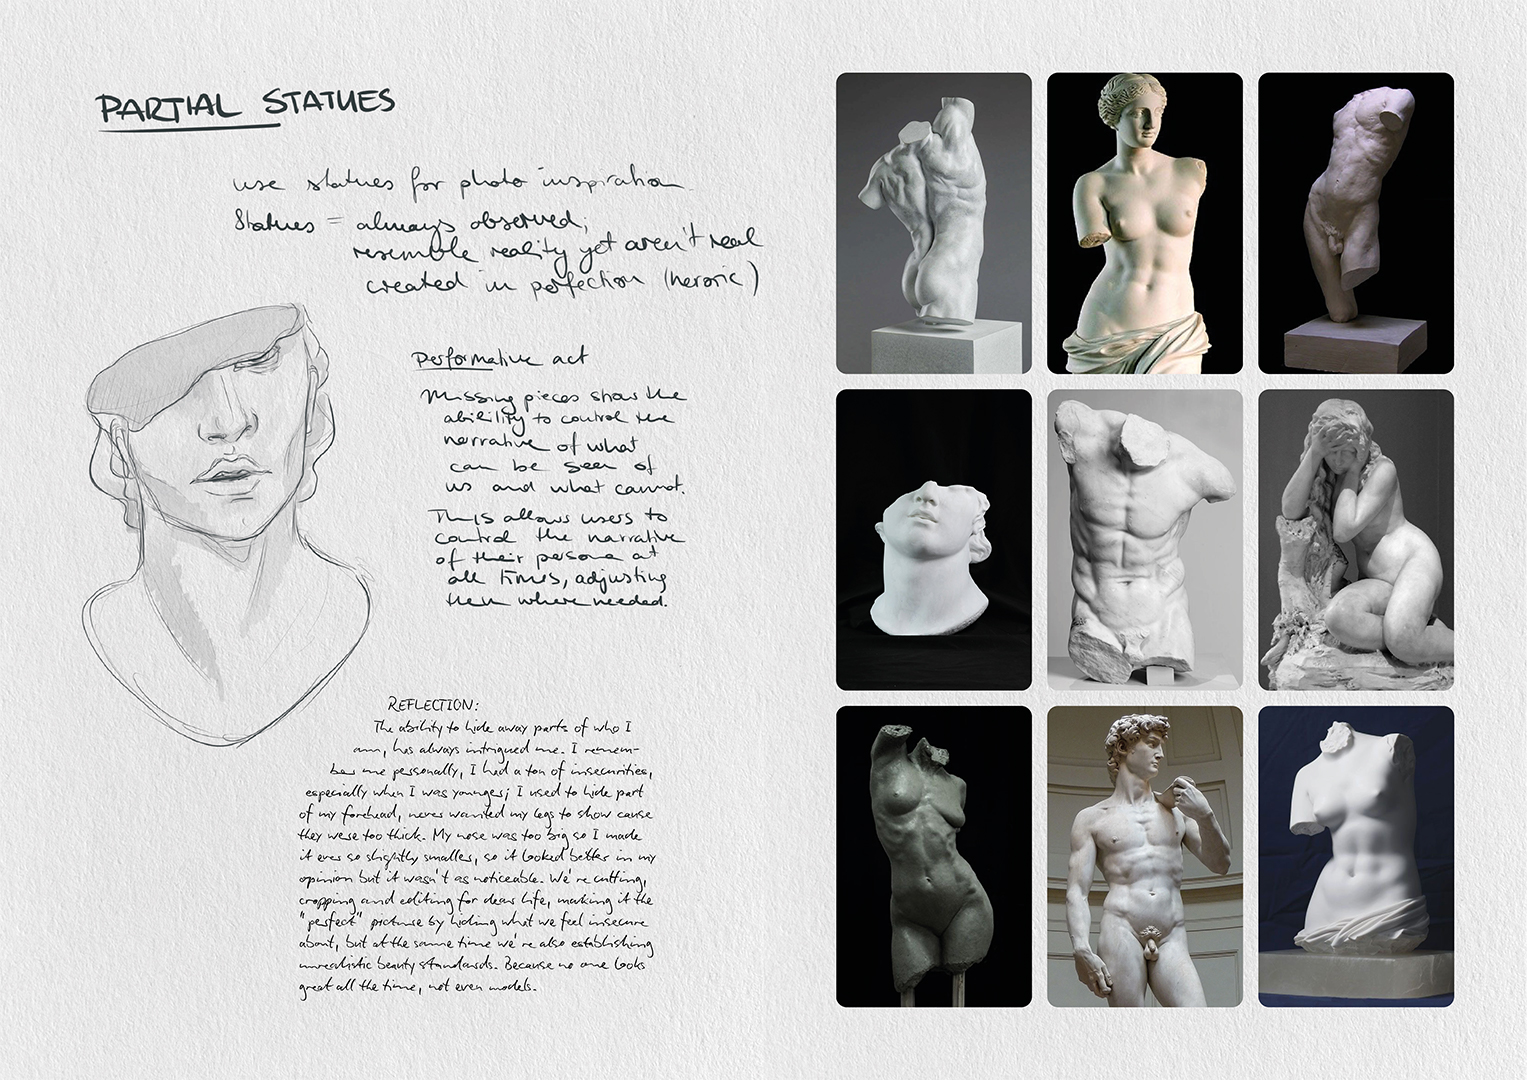 PARTIAL STATUES
use statues for photo inspiration
Statues = always observed;
resemble reality yet aren't real
created in perfection (heroric)
performative act
Missing pieces show the
ability to control the
narrative of what
can be seen of
us and what cannot.
This allows users to
control the narrative
of their persona at
all times, adjusting
them where needed.
REFLECTION:
The ability to hide away parts of who I
am, has always intrigued me. I remem-
ber me personally, I had a ton of insecurities,
especially when I was younger; I used to hide part
of my forehead, never wanted my legs to show cause
they were too thick. My nose was too big so I made
it ever so slightly smaller, so it looked better in my
opinion but it wasn't as noticeable. We're cutting,
cropping and editing for dear life, making it the
"perfect" picture by hiding what we feel insecure
about, but at the same time we're also establishing
unrealistic beauty standards. Because no one looks
great all the time, not even models.